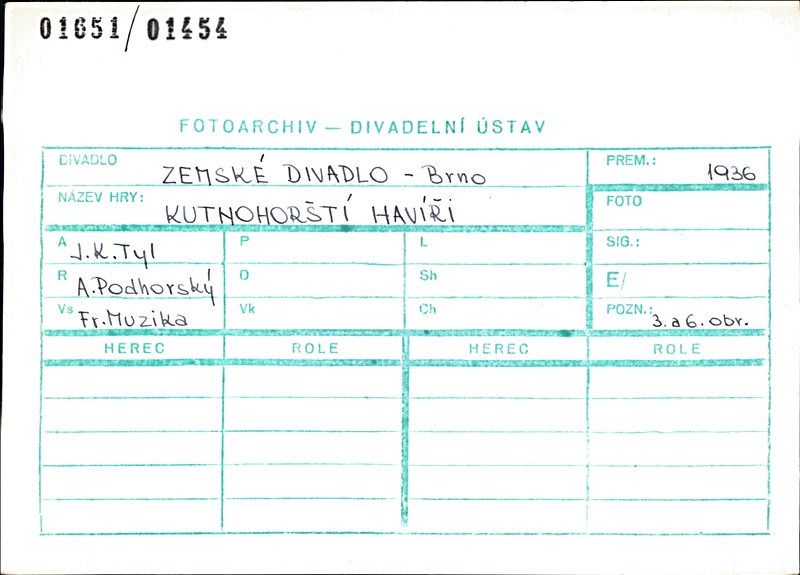 01651/01454
FOTOARCHIV — DIVADELNÍ ÚSTAV
DIVADLO ZEMSKÉ DIVADLO - Brno PREM.: 1936
NÁZEV HRY: KUTNOHORŠTÍ HAVÍŘI FOTO
A J.K.Tyl P L SIG.:
R A.Podhorský D Sh E/
Vs Fr.Muzika Vk Ch POZN.: 3. a 6. obr.
HEREC ROLE HEREC ROLE